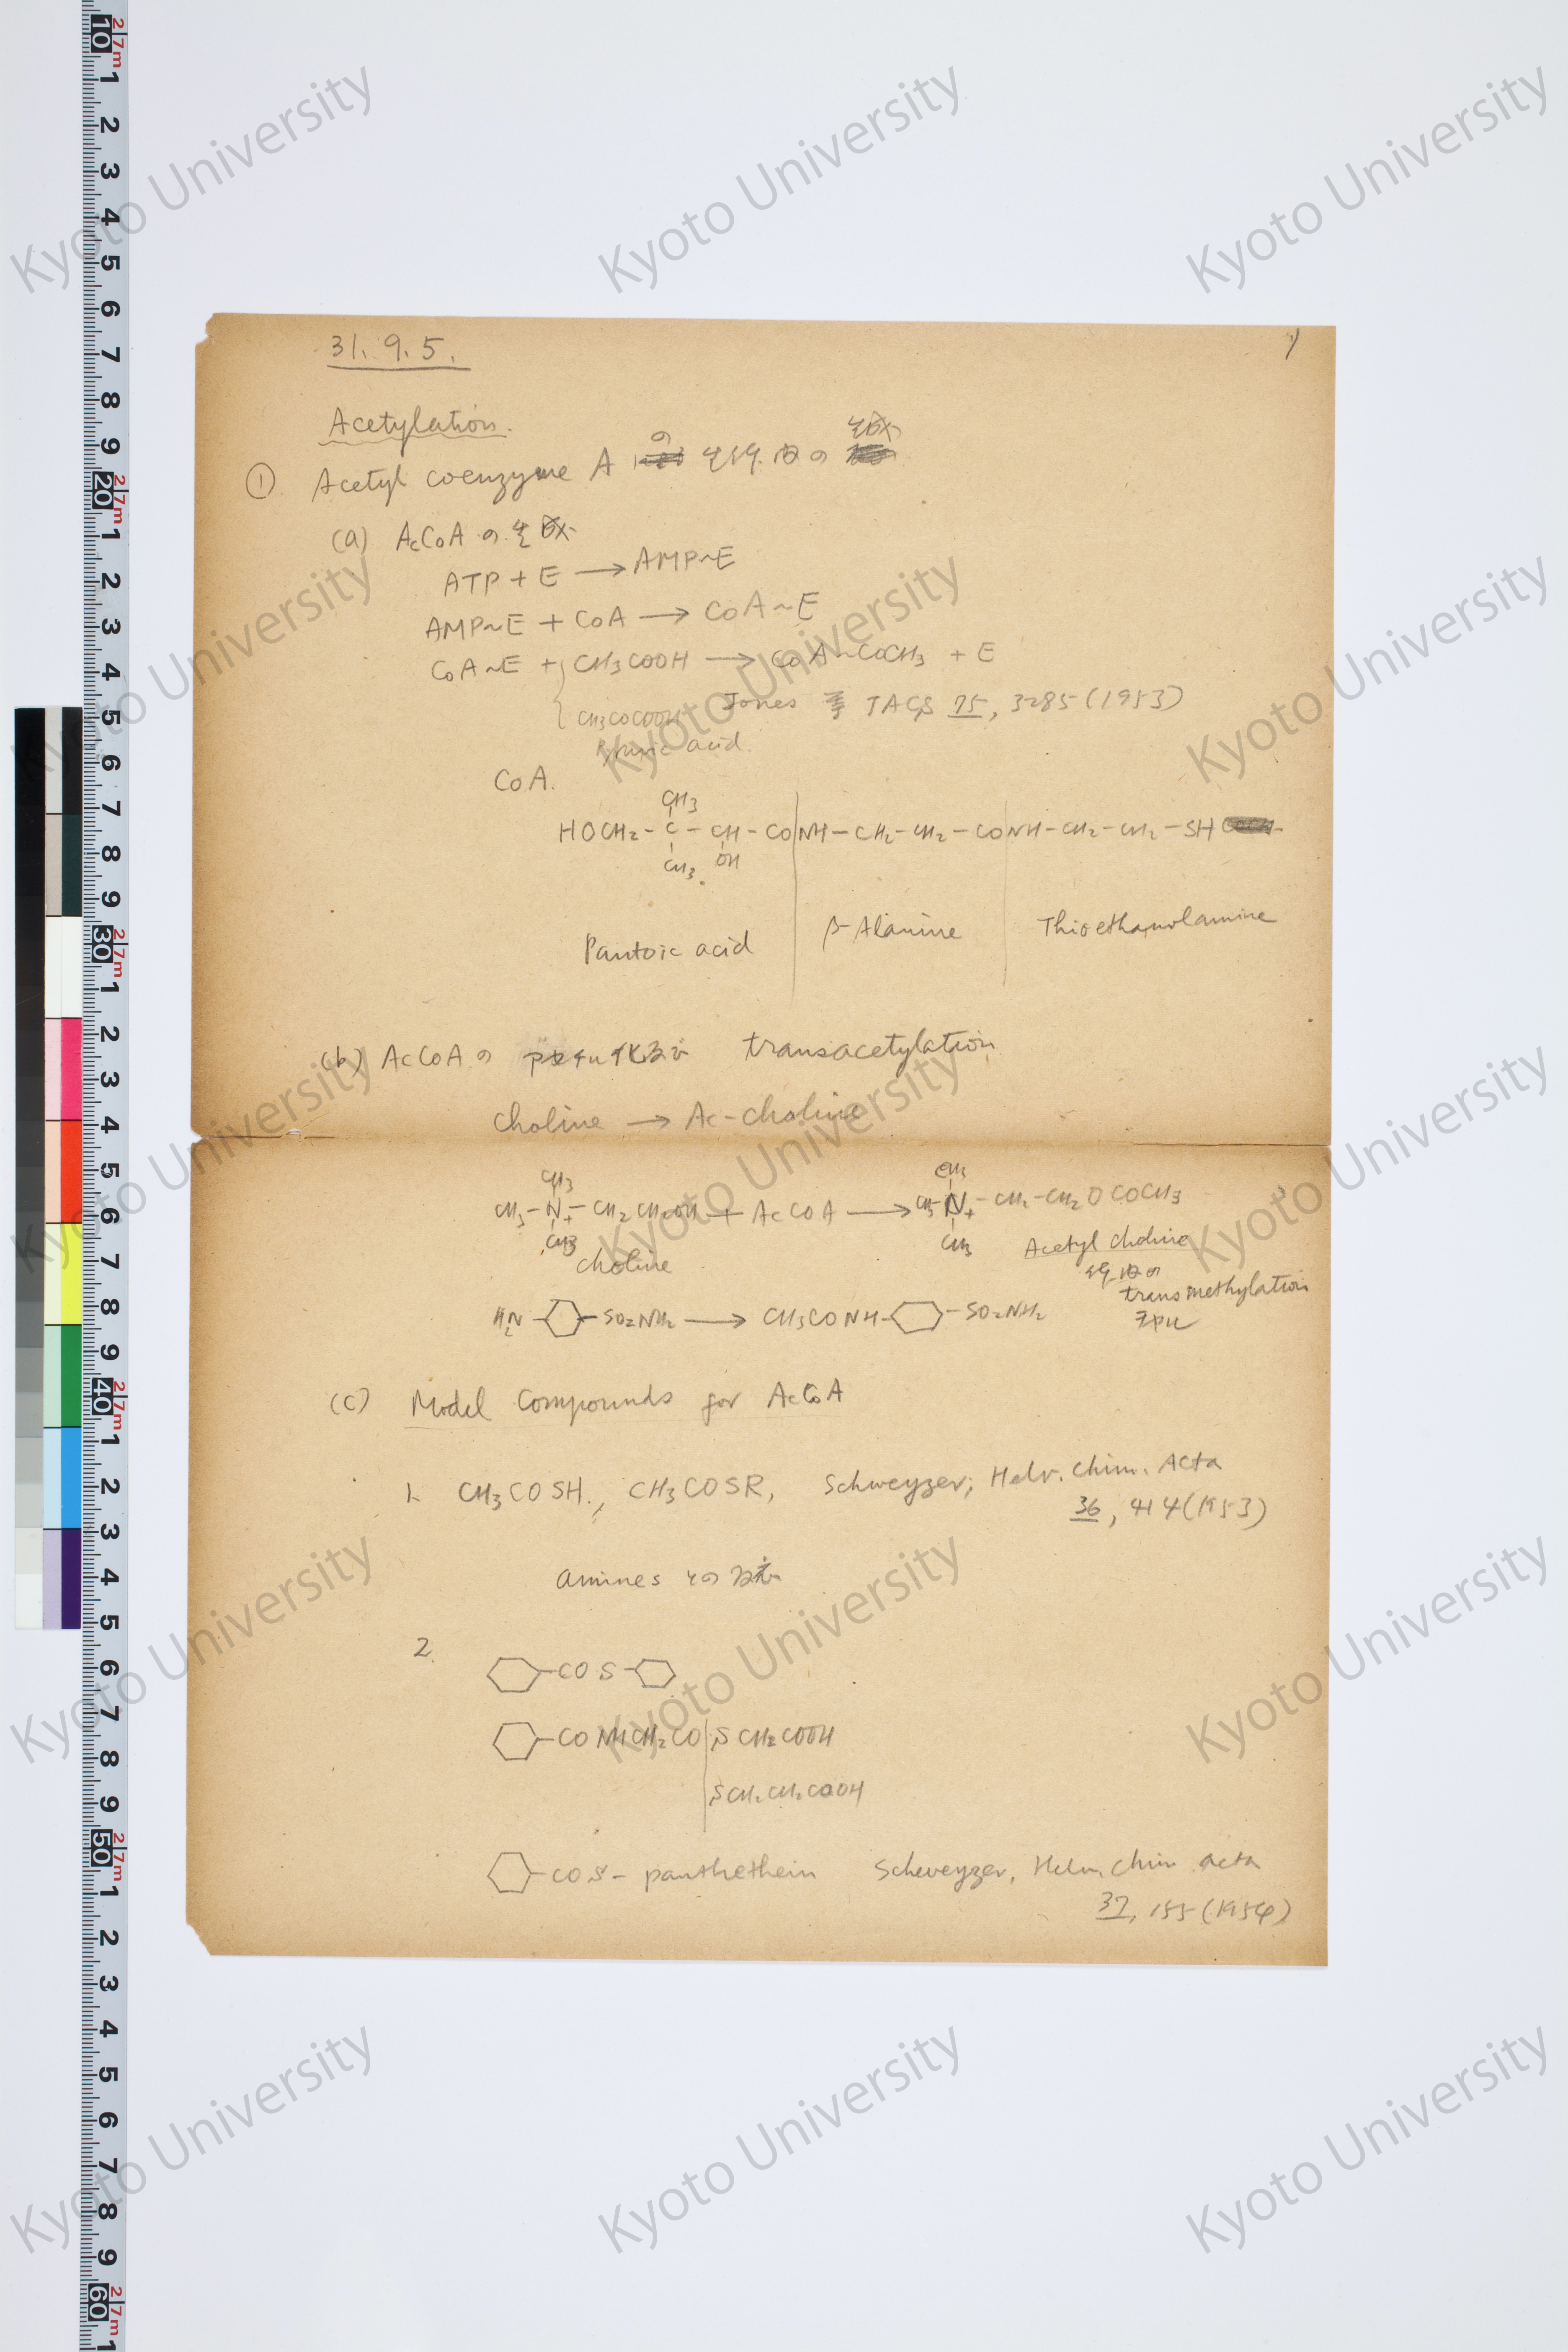 31. 9. 5.
1)
Acetylation.
① Acetyl coenzyme A の 生体内の 生成
(a) AcCoA の 生成
ATP + E → AMP~E
AMP~E + CoA → CoA~E
CoA~E + { CH3COOH → CoA~COCH3 + E
{ CH3COCOOH Jones 等 JACS 75, 3285 (1953)
Pyruvic acid
CoA.
CH3
HOCH2 - C - CH - CO|NH - CH2 - CH2 - CO|NH - CH2 - CH2 - SH
CH3 OH
Pantoic acid | β-Alanine | Thioethanolamine
(b) AcCoA の transacetylation
choline → Ac-choline
CH3 CH3
CH3 - N+ - CH2CH2OH + AcCoA → CH3 - N+ - CH2 - CH2OCOCH3
CH3 CH3
choline Acetyl choline
transmethylation
H2N - - SO2NH2 → CH3CONH - - SO2NH2
(c) Model Compounds for AcCoA
1. CH3COSH., CH3COSR, Schweyzer, Helv. Chim. Acta
36, 414 (1953)
amines との反応
2.
- CO S -
- CO NHCH2CO | SCH2COOH
| SCH2CH2COOH
- COS - panthethein Schweyzer, Helv. Chim. Acta
37, 155 (1954)
Kyoto University